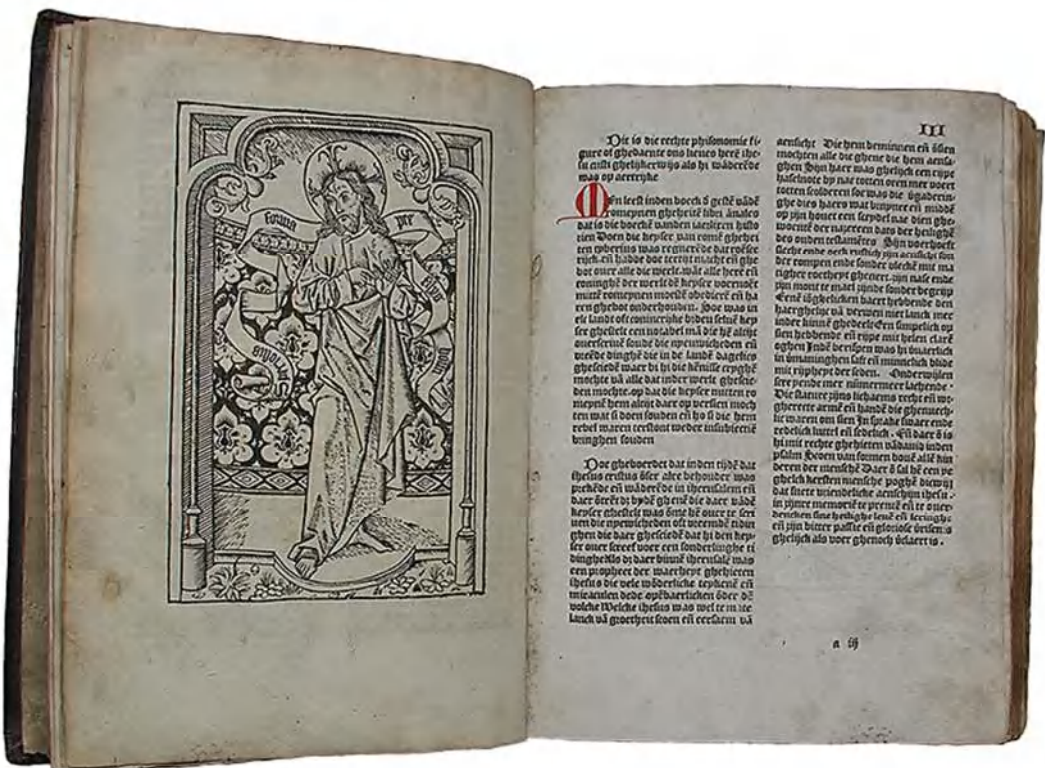 Speciosus
forma
pre
filiis
hominum
III
Dit is die rechte phisonomie fi-
gure of ghedaente ons lieues herē ihe-
su cristi ghelijkerwijs als hi wāderēde
was op aertrijke
MEn leest inden boeck d̄ gestē vādē
romeynen gheheitē libri ānales
dat is die boeckē vanden iaerlixen histo
rien Doen die keyser van romē ghehei
ten tyberius was regnerēde daer vs̄er
rijck. eñ hadde doe terrijt macht eñ ghe
bot ouer alle die werlt. wāt alle herē eñ
coninghē der werlt dē keyser voernoēt
mittē romeynen moestē obedierē eñ ha
ren ghebot onderhouden. Soe was in
elc landt oft coninerijke biden seluē key
ser ghestelt een notabel mā die hē altijt
ouerscriuē soude die nyeuwicheden eñ
vreēde dinghē die in de landē dagelics
ghesciedē waer bi hi die kēnisse cryghē
mochte vā alle dat inder werlt ghescie-
den mochte. op dat die keyser mitten ro
meynē hem altijt daer op versien moch
ten wat si doen souden eñ ho si die hem
rebel waren terstont weder insubiectiē
bringhen souden
Doe gheboerdet dat inden tijdē dat
ihesus cristus ōser alre behouder was
prekēde eñ wāderēde in iherusalem eñ
daer ōtrēt bi dē ghenē die daer vādē
keyser ghestelt was ōme hē ouer te scri
uen die nyewicheden oft vreemdē tidin
ghen die daer ghesciedē dat hi den key-
ser ouer screef voer een sonderlinghe ti
dinghe Als dz daer binnē iherusalē was
een propheet der waerheyt ghehieten
ihesus die vele wōderlicke teykenē eñ
miraculen dede opēbaerlicken ōder dē
volcke Welcke ihesus was wel te mate
lanck vā groetheit scoen eñ eersaem vā
aensicht Die hem beminnen eñ ōtsien
mochten alle die ghene die hem aensa-
ghen Sijn haer was ghelijck een rijpe
haselnote by nae totten oren mer voert
totten scolderen soe was die vgaderin-
ghe dies haers wat bruynre eñ middē
op zijn houet een sceydel nae dien ghe-
woentē der nazereen dats der heilighē
des ouden testamētes Sijn voerhoeft
slecht ende oeck rustich zijn aensicht son
der rompen ende sonder vleckē mit ma
tigher roetheyt ghenert. zijn nase ende
zijn mont te mael zijnde sonder begrijp
Eenē iōghelicken baert hebbende den
haer ghelijc vā verwen niet lanck mer
inder kinnē ghedeelt Een simpelick op
sien hebbende eñ rijpe mit helen clarē
oghen Indē berispen was hi vaerlich
in vmaninghen saft eñ minnelick blide
mit rijpheyt der seden. Onderwijlen
screyende mer nūmermeer lachende.
Die stature zijns lichaems recht eñ wt-
ghereect armē eñ handē die ghenuech-
lic waren om sien In sprake swaer ende
redelick luttel eñ sedelick. Eñ daer ō is
hi mit rechte ghehieten vā dauid inden
psalm Scoen van formen bouē allē kin
deren der menschē Daer ō sal hē een ye
ghelick kersten mensche poghē diewijl
dat suete vriendelicke aenschijn ihesu.
in zijnre memoriē te prentē eñ te ouer-
dencken sine heilighe leuē eñ leeringhe
eñ zijn bitter passie eñ gloriose v̄risenis
ghelijck als voer ghenoch v̄claert is.
a iij